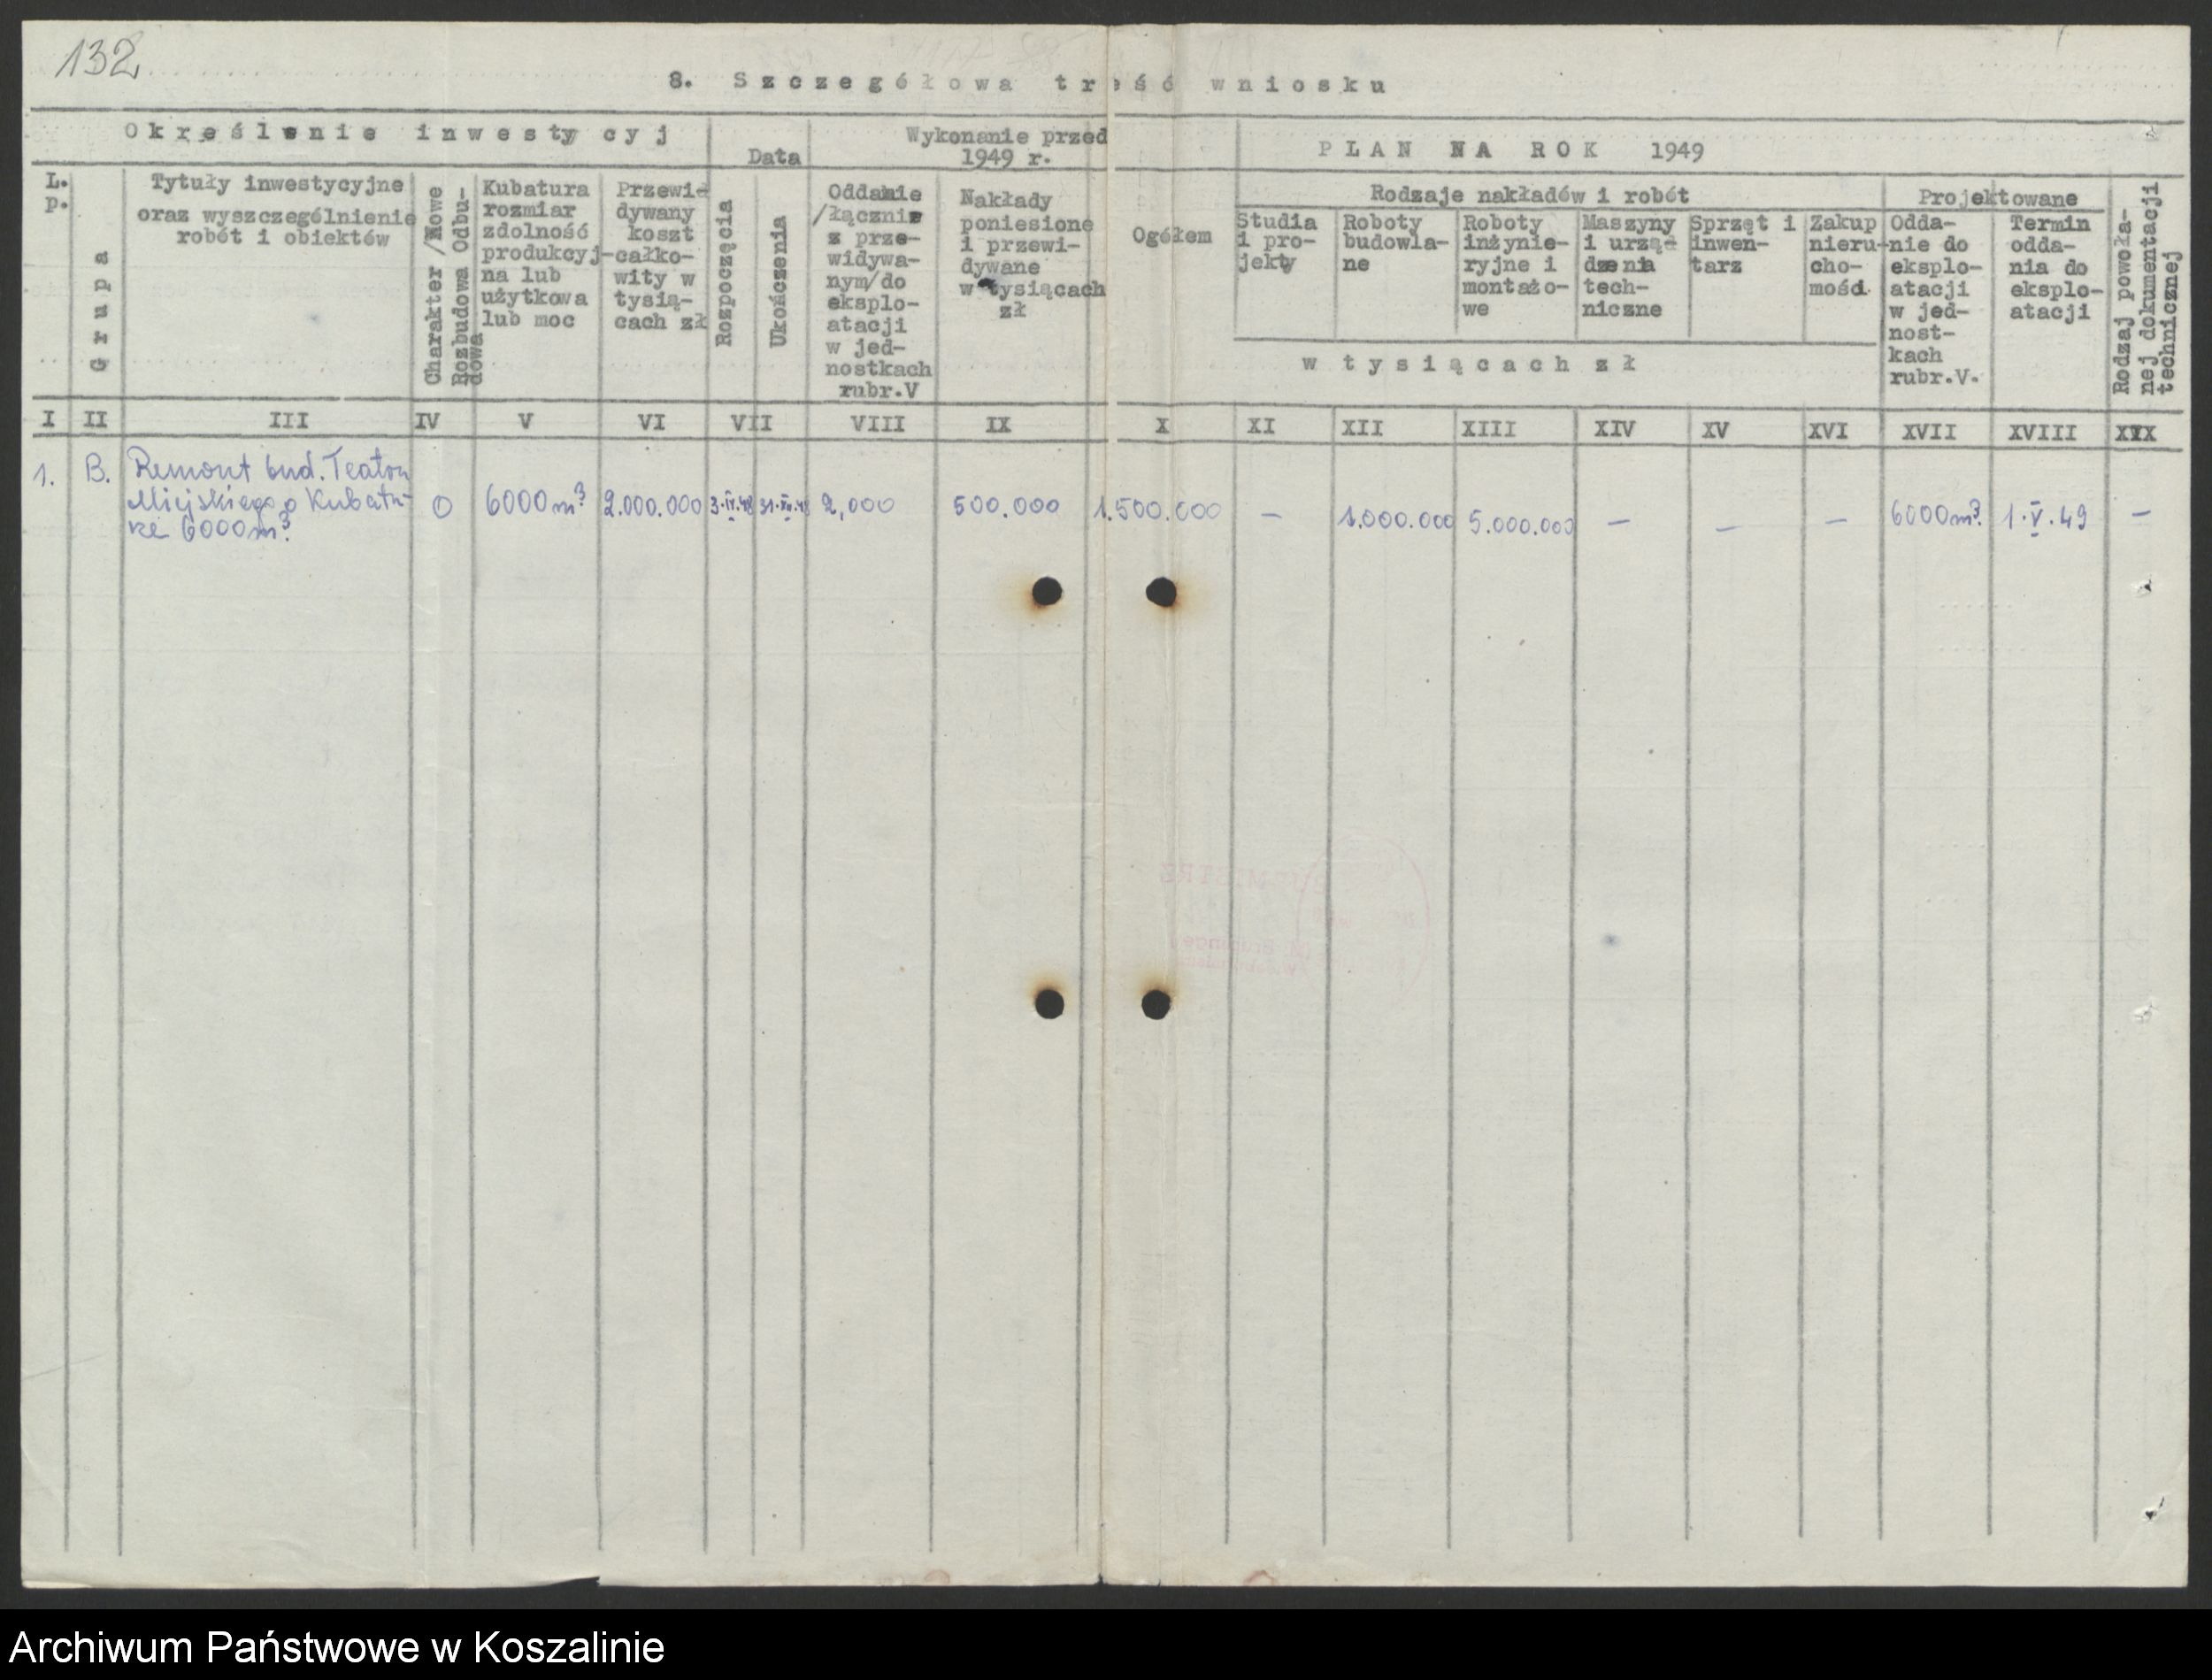 132
8. Szczegółowa treść wniosku
Określenie inwestycyj
Data
Wykonanie przed
1949 r.
PLAN NA ROK 1949
L.
p.
Grupa
Tytuły inwestycyjne
oraz wyszczególnienie
robót i obiektów
Charakter /Nowe
Rozbudowa Odbu-
dowa
Kubatura
rozmiar
zdolność
produkcyj-
na lub
użytkowa
lub moc
Przewi-
dywany
koszt
całko-
wity w
tysią-
cach zł
Rozpoczęcia
Ukończenia
Oddanie
/łącznie
z prze-
widywa-
nym/do
eksplo-
atacji
w jed-
nostkach
rubr.V
Nakłady
poniesione
i przewi-
dywane
w tysiącach
zł
Ogółem
Rodzaje nakładów i robót
Studia
i pro-
jekty
Roboty
budowla-
ne
Roboty
inżynie-
ryjne i
montażo-
we
Maszyny
i urzą-
dzenia
tech-
niczne
Sprzęt i
inwen-
tarz
Zakup
nieru-
cho-
mości
w tysiącach zł
Projektowane
Odda-
nie do
eksplo-
atacji
w jed-
nost-
kach
rubr.V.
Termin
odda-
nia do
eksplo-
atacji
Rodzaj powoła-
nej dokumentacji
technicznej
I II III IV V VI VII VIII IX X XI XII XIII XIV XV XVI XVII XVIII XIX
1. B. Remont bud. Teatru
Miejskiego o kubatu-
rze 6000 m³
O 6000 m³ 2.000.000 3.IV.48 31.XII.48 2,000 500.000 1.500.000 — 1.000.000 5.000.000 — — — 6000 m³. 1.V.49 —
Archiwum Państwowe w Koszalinie